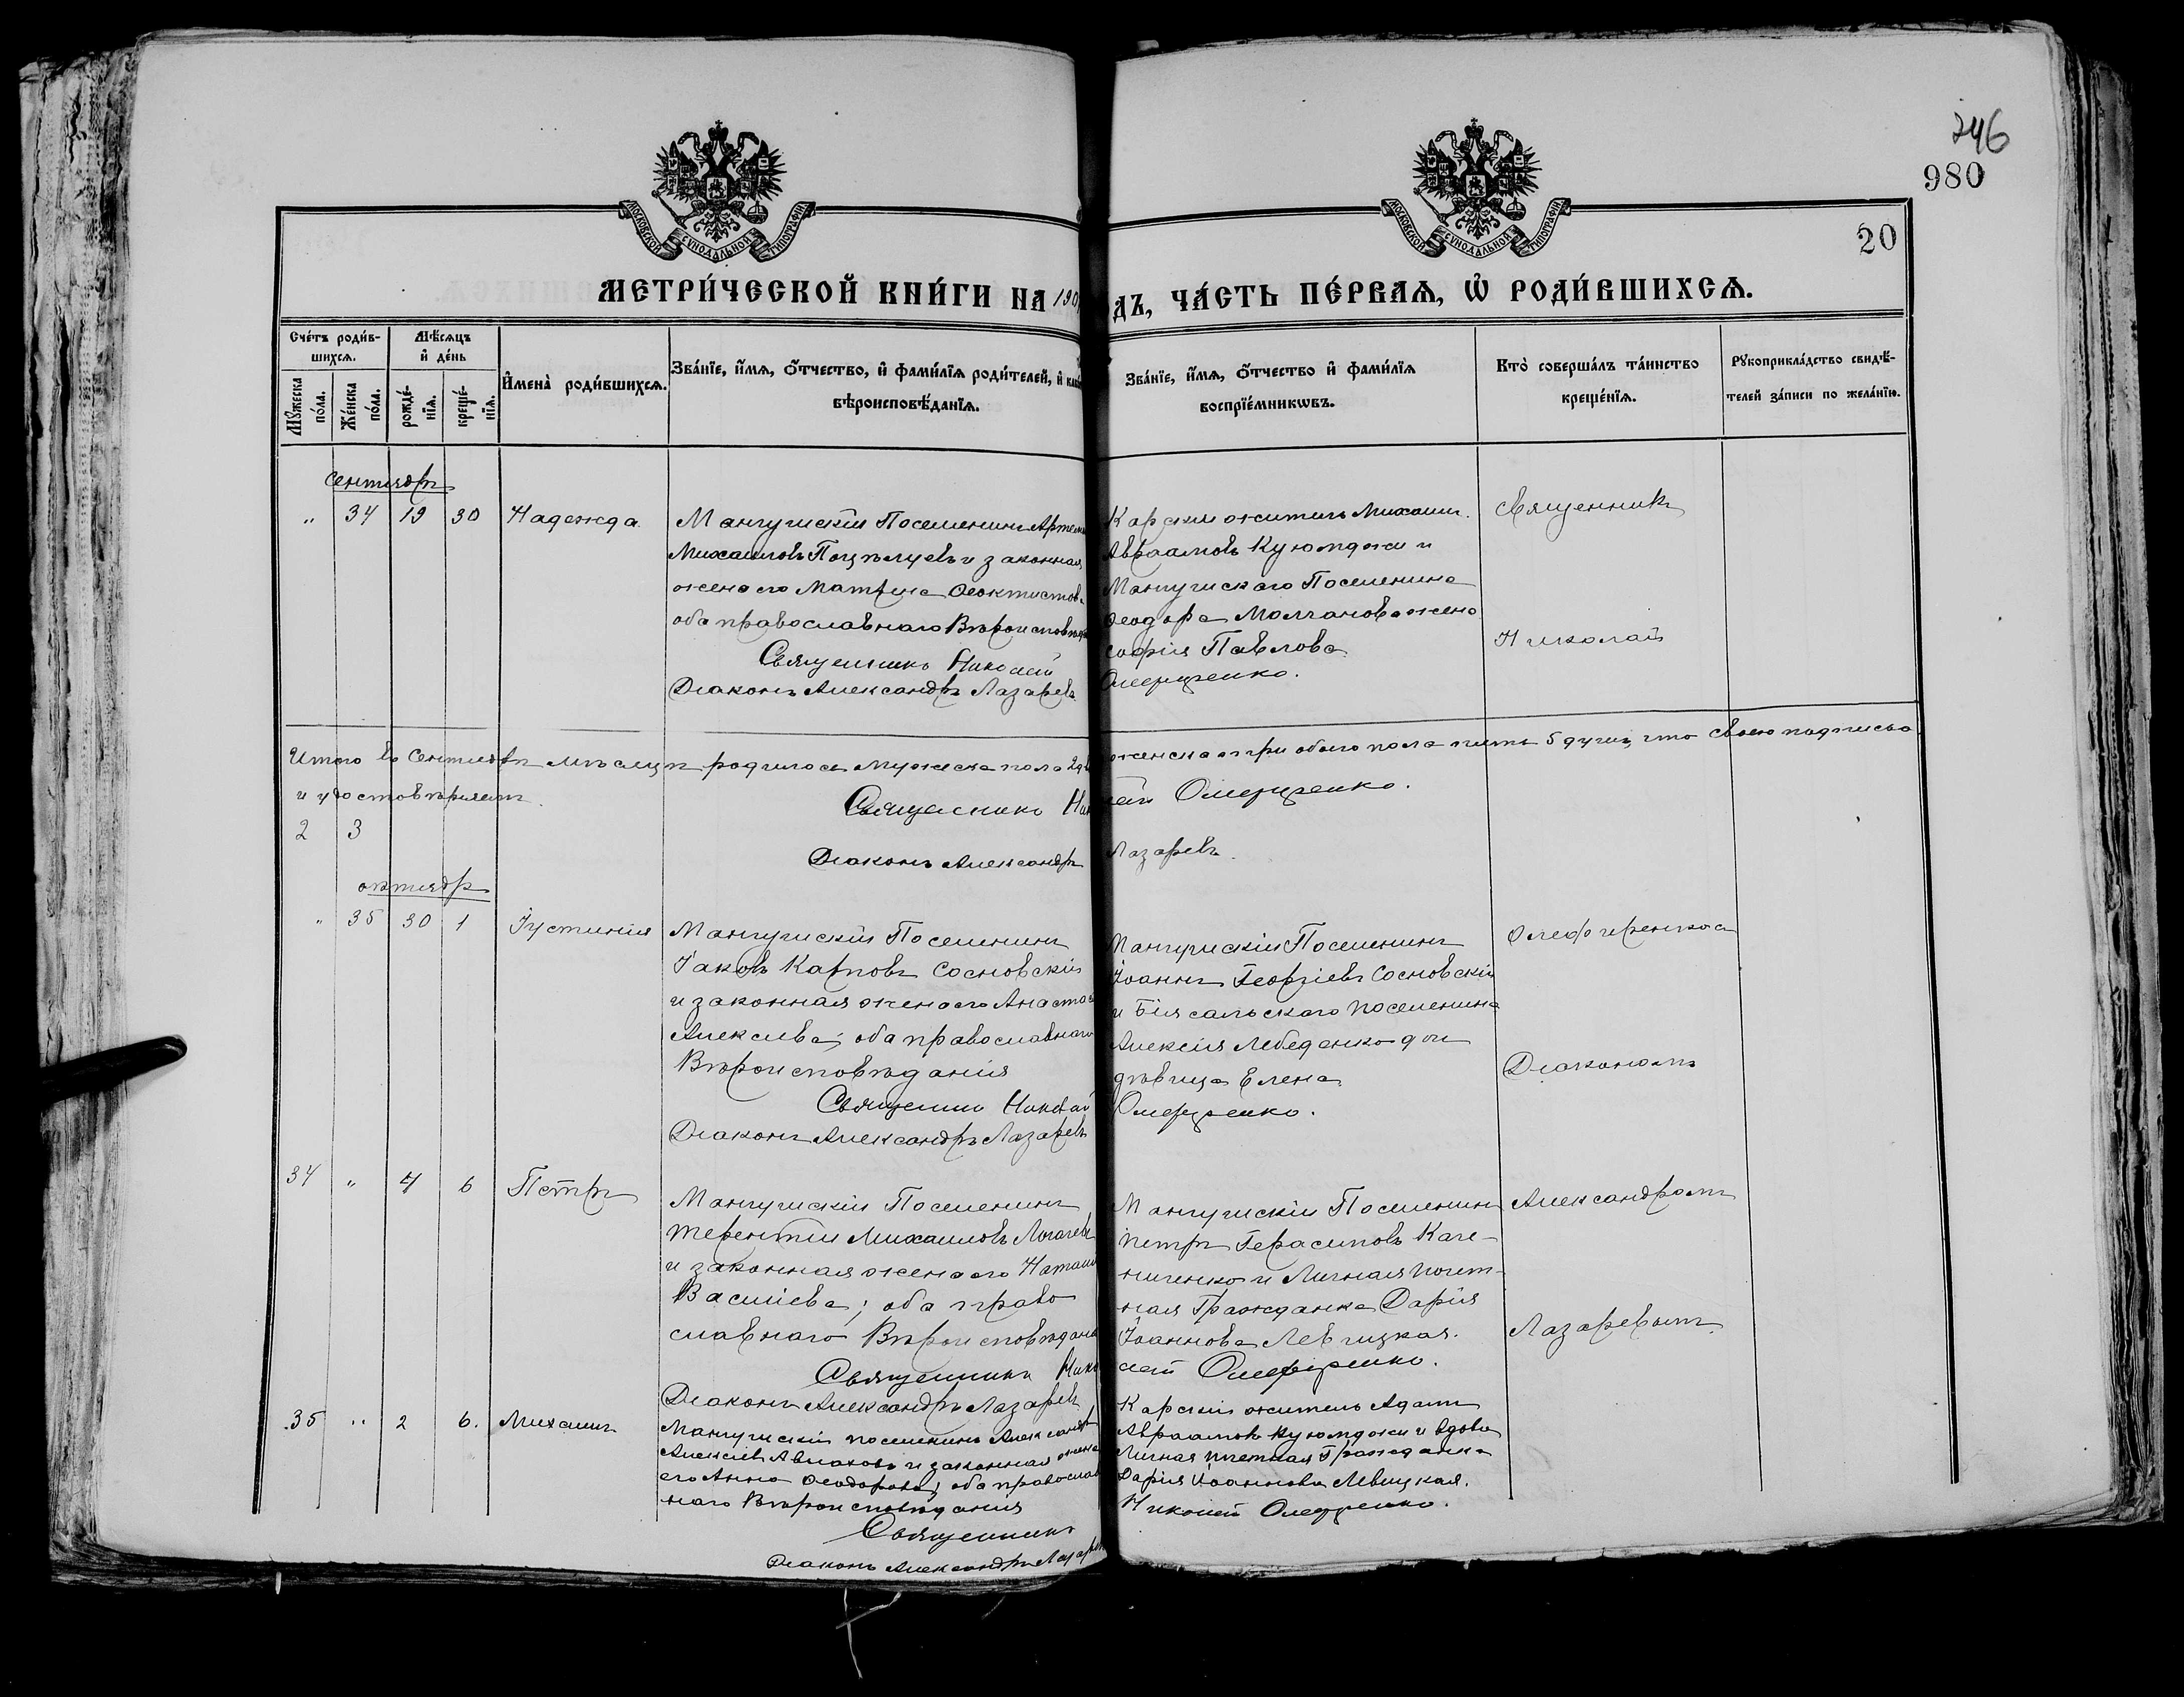 246
980
20
МОСКОВСКОЙ СѴНОДАЛЬНОЙ ТИПОГРАФІИ
МОСКОВСКОЙ СѴНОДАЛЬНОЙ ТИПОГРАФІИ
МЕТРИ́ЧЕСКОЙ КНИ́ГИ НА 190
ДЪ, ЧА́СТЬ ПЕ́РВАѦ, Ѡ҆ РОДИ́ВШИХСѦ.
Сче́тъ роди́в-
шихсѧ.
Мѣ́сѧцъ
и҆ де́нь
Мꙋжеска по́ла.
Же́нска по́ла.
рожде́-нїѧ.
креще́-нїѧ.
И҆мена̀ роди́вшихсѧ.
Зва́нїе, и҆́мѧ, ѻ҆́тчество, и҆ фами́лїѧ роди́телей, и҆
вѣроисповѣ́данїѧ.
Зва́нїе, и҆́мѧ, ѻ҆́тчество и҆ фами́лїѧ
воспрїе́мникѡвъ.
Кто̀ соверша́лъ та́инство
креще́нїѧ.
Рꙋкоприкла́дство свидѣ́-
телей за́писи по жела́нїю.
сентябрь
" 34 19 30 Надежда
Мангушскій Поселенинъ
Михаиловъ Поцѣлуевъ и законная
жена его Матрена Ѳеоктистова
оба православнаго
Священникъ Николай
Діаконъ Александръ Лазаревъ
Карскій житель Михаилъ
Авраамовъ Куюмджи и
Мангушскаго Поселенина
Ѳеодора Молчанова жена
Софія Павлова
Олеференко.
Священникъ
Николай
Итого въ Сентябрѣ мѣсяцѣ родилося мужеска пола 2
женска три обоего пола пять 5 душъ, что своею подписью
и удостовѣряемъ.
Священникъ
Олеференко.
2 3
Діаконъ Александръ
Лазаревъ.
октябрь
" 35 30 1 Іустинія
Мангушскій Поселенинъ
Іаковъ Карповъ Сосновскій
и законная жена его
Алексіева; оба православнаго
Вѣроисповѣданія
Священникъ Николай
Діаконъ Александръ Лазаревъ
Мангушскій Поселенинъ
Іоаннъ Георгіевъ Сосновскій
и Біясальскаго поселенина
Алексія Лебеденко дочь
дѣвица Елена
Олеференко.
Олеференко съ
Діакономъ
34 " 4 6 Петръ
Мангушскій Поселенинъ
Терентій Михаиловъ
и законная жена его
Васильева; оба право
славнаго
Священникъ
Діаконъ Александръ Лазаревъ
Мангушскій Поселенинъ
Петръ Герасимовъ Каче-
ниченко и Личная почет-
ная Гражданка Дарія
Іоаннова Левицкая.
Олеференко.
Александромъ
Лазаревымъ.
35 " 2 6. Михаилъ
Мангушскій поселенинъ Александръ
Алексіевъ и законная жена
его Анна Ѳеодорова; оба
наго Вѣроисповѣданія
Священникъ
Діаконъ Александръ Лазаревъ
Карскій житель Адамъ
Авраамовъ Куюмджи и вдова
Личная почетная Гражданка
Дарія Іоаннова Левицкая.
Николай Олеференко.